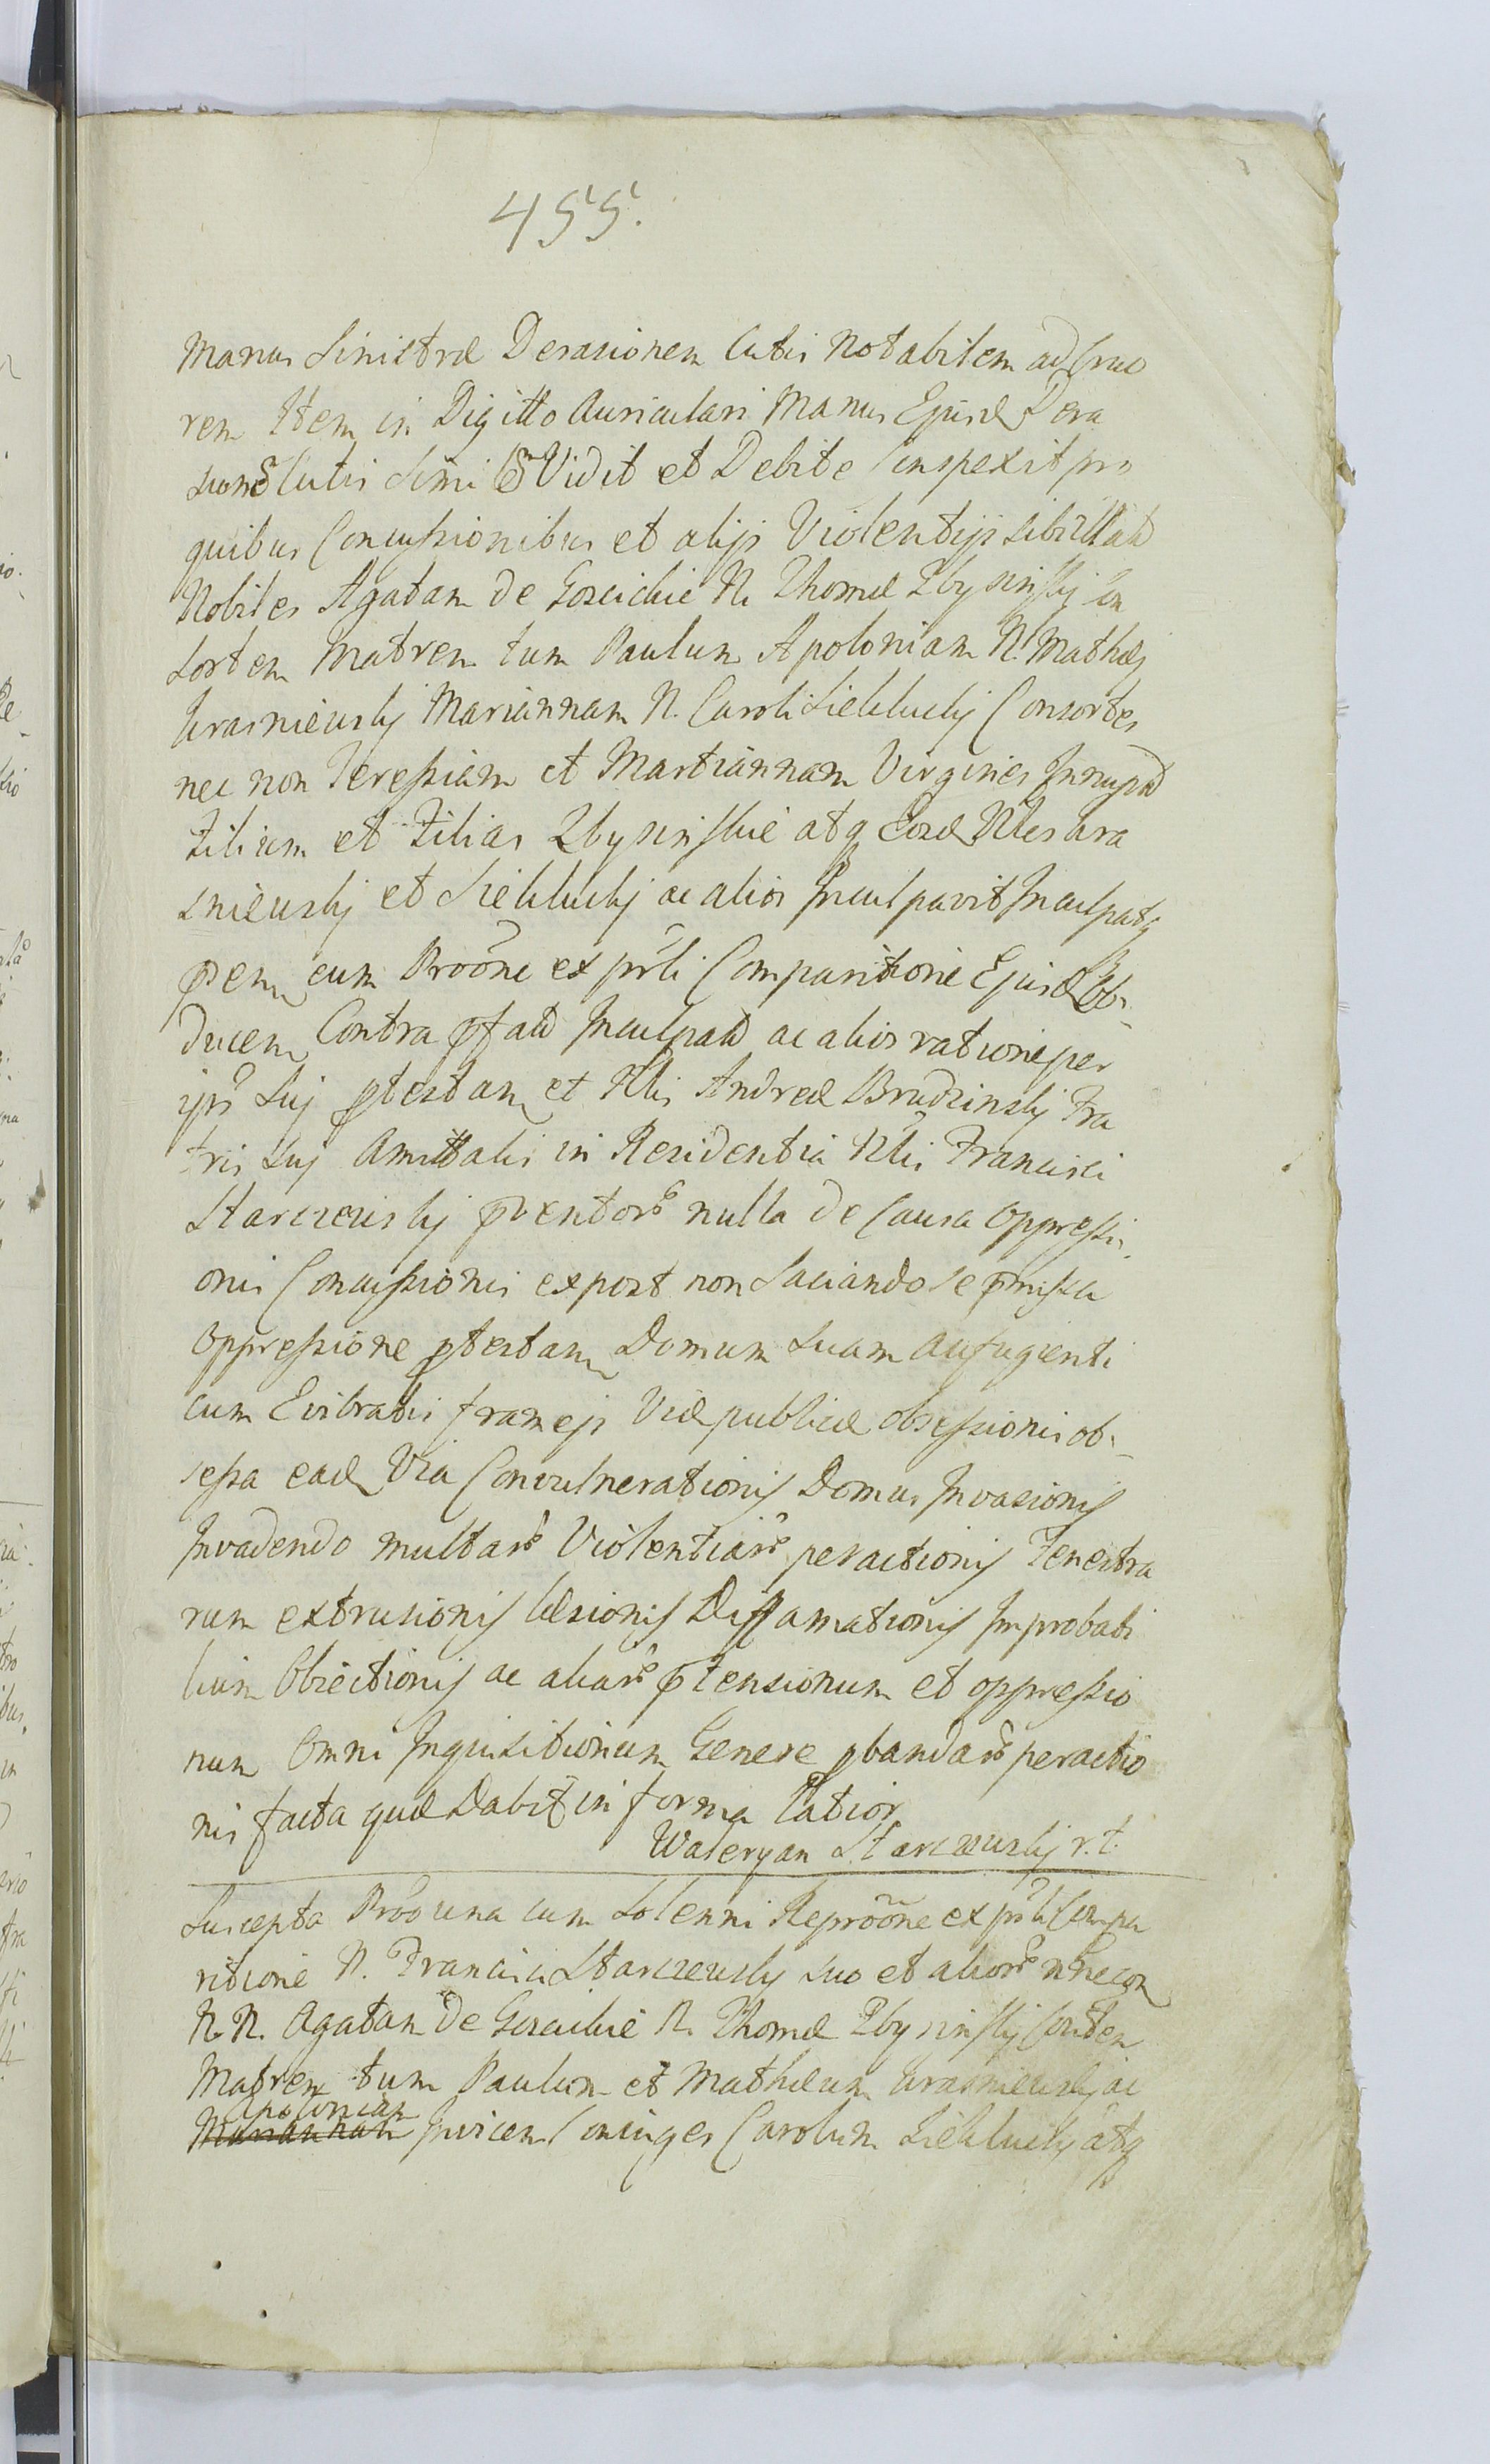 455.
Manus Sinistræ Derasionem Cutis Notabilem ad Cruo
rem Item in Digitto Auriculari Manus Ejusd Dera
sionē Cutis Simi Vidit et Debite Conspexit pro
quibus Concussionibus et alijs Violentijs sibi illat
Nobiles Agatam de N. Thomæ Zbysinskij Con
sortem Matrem tum Paulum Apoloniam N. Mathæj
Krasniewskj Mariannam N. Caroli Siekluckj Consortes
nec non Teressiam et Martiannam Virgines Innupt
Filium et Filias Zbysinskie atq Eosd Nbles Kra
sniewskj et Siekluckj ac alios Inculpavit Inculpatq
pšen cum Proōne ex prli Comparitione Ejusd Ob
ducen Contra pfat Inculpat ac alios ratione per
ipš Suj ptestan et Nlis Andreæ Brudzinskj Fra
tris Suj Amittalis in Residentia Nlis Francisci
Starczewskj nulla de Causa Oppressi
onis Concussionis expost non Saciando se pmissa
Oppressione ptestan Domum Suam Aufugienti
cum Evibratis frameis Viæ publicæ obsessionis ob
sessa ead Via Convulnerationis Domus Invasionis
Invadendo multarū Violentiarū peractionis Fenestra
rum extrusionis læsionis Diffamationis Improbabi
lium Obiectionis ac aliarū ptensionum et oppressio
num Omni Inquisitionum Genere pbandarū peractio
nis facta quæ Dabit in forma Latior
Waleryan Starczewskj r.t.
Suscepta Proō una cum Solenni Reproōne ex prli Compa
ritione N. Francisci Starczewskj suo et aliorū nne con
N.N. Agatam de N. Thomæ Zbysinskij Cortem
Matrem tum Paulum et Mathæum Krasniewskj ac
Apoloniam
Mariannam Invicem Coniuges Carolum Siekluckj atq